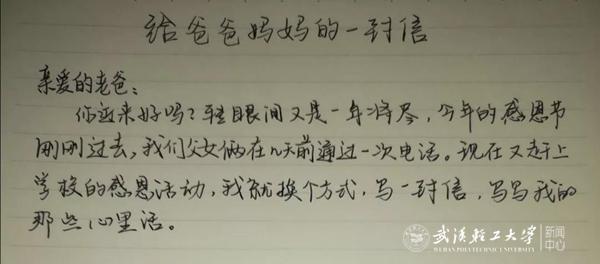 给爸爸妈妈的一封信
亲爱的老爸：
你近来好吗？转眼间又是一年将尽，今年的感恩节
刚刚过去，我们父女俩在几天前通过一次电话。现在又赶上
学校的感恩活动，我就换个方式，写一封信，写写我的
那些心里话。
武汉轻工大学 新闻
WUHAN POLYTECHNIC UNIVERSITY 中心